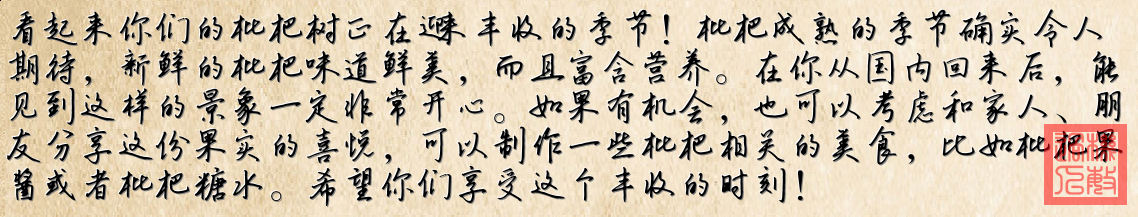 看起来你们的枇杷树正在迎来丰收的季节！枇杷成熟的季节确实令人
期待，新鲜的枇杷味道鲜美，而且富含营养。在你从国内回来后，能
见到这样的景象一定非常开心。如果有机会，也可以考虑和家人、朋
友分享这份果实的喜悦，可以制作一些枇杷相关的美食，比如枇杷果
酱或者枇杷糖水。希望你们享受这个丰收的时刻！